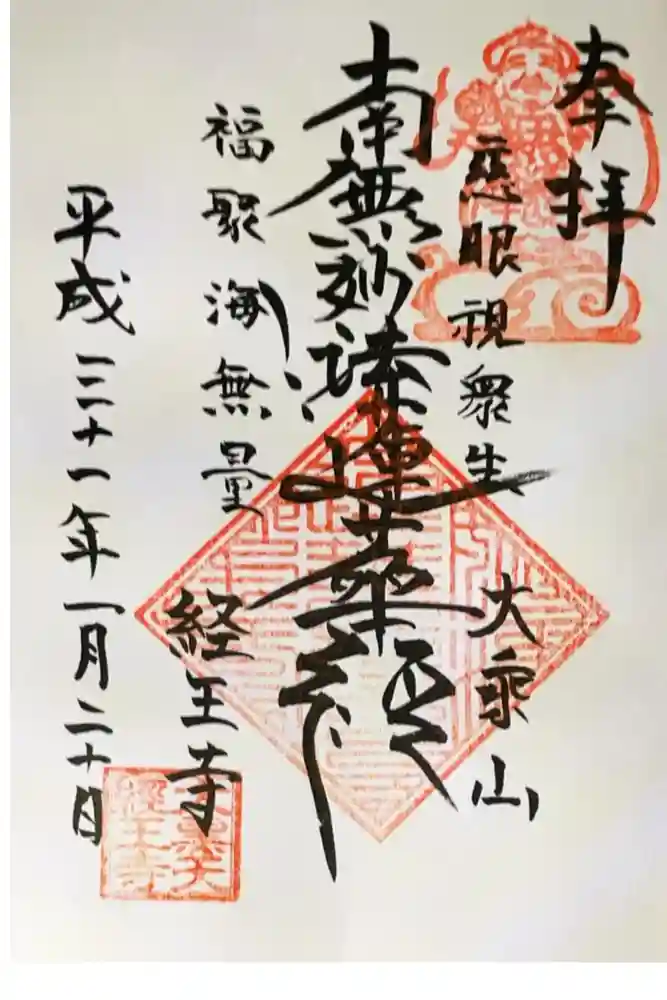 奉拝
慈眼視衆生
大乗山
南無妙法蓮華経
福聚海無量
経王寺
平成三十一年一月二十日